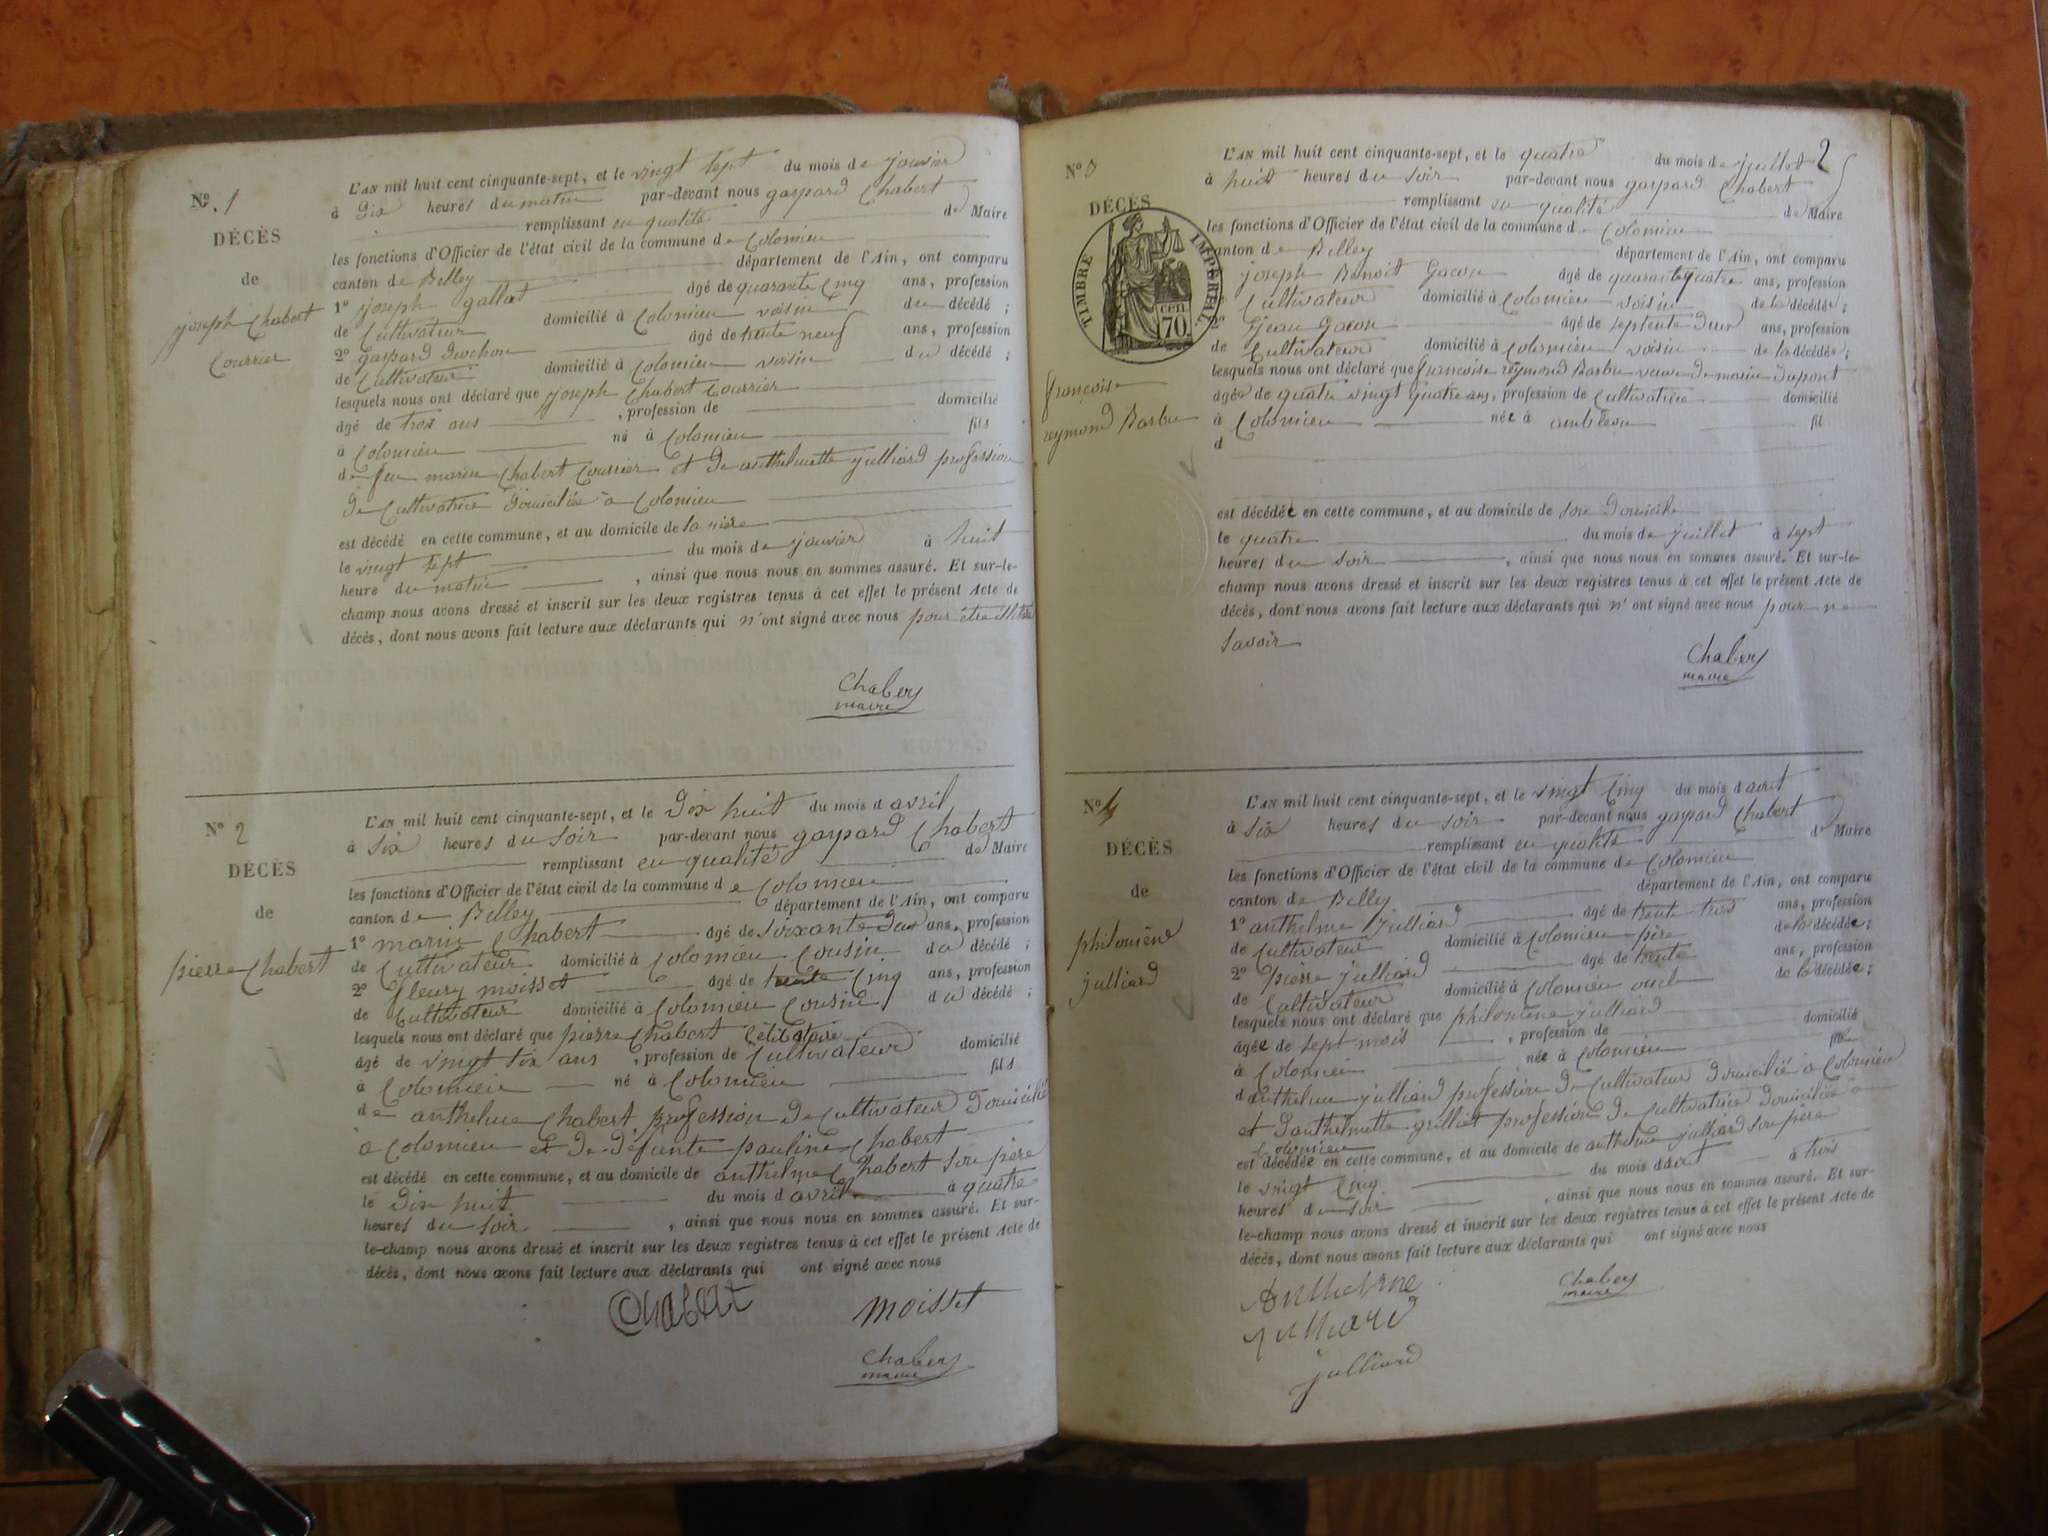 N.° 1
DÉCÈS
de
joseph Chabert
Courrier
L'AN mil huit cent cinquante-sept, et le vingt sept du mois de janvier
à Dix heures du matin par-devant nous gaspard Chabert
remplissant en qualité de Maire
les fonctions d'Officier de l'état civil de la commune de Colomieu
canton de Belley département de l'Ain, ont comparu
1° joseph gallat âgé de quarante Cinq ans, profession
de Cultivateur domicilié à Colomieu voisin du décédé ;
2° gaspard âgé de trente neuf ans, profession
de Cultivateur domicilié à Colomieu voisin du décédé ;
lesquels nous ont déclaré que joseph Chabert Courrier
âgé de trois ans , profession de domicilié
à Colomieu né à Colomieu fils
de feu marin Chabert Courrier et de anthelmette julliard profession
De Cultivatrice Domiciliée à Colomieu
est décédé en cette commune, et au domicile de sa mère
le vingt sept du mois de janvier à huit
heure du matin , ainsi que nous nous en sommes assuré. Et sur-le-
champ nous avons dressé et inscrit sur les deux registres tenus à cet effet le présent Acte de
décès, dont nous avons fait lecture aux déclarants qui n'ont signé avec nous pour être
Chabert
maire
N° 2
DÉCÈS
de
pierre Chabert
L'AN mil huit cent cinquante-sept, et le Dix huit du mois d avril
à Six heures du Soir par-devant nous gaspard Chabert
remplissant en qualité de Maire
les fonctions d'Officier de l'état civil de la commune de Colomieu
canton de Belley département de l'Ain, ont comparu
1° marin Chabert âgé de soixante Deux ans, profession
de Cultivateur domicilié à Colomieu Cousin du décédé ;
2° fleury moisset âgé de trente Cinq ans, profession
de Cultivateur domicilié à Colomieu Cousin du décédé ;
lesquels nous ont déclaré que pierre Chabert Célibataire
âgé de vingt six ans , profession de Cultivateur domicilié
à Colomieu né à Colomieu fils
de anthelme Chabert profession De Cultivateur Domicilié
à Colomieu et De Défunte pauline Chabert
est décédé en cette commune, et au domicile de anthelme Chabert Son père
le Dix huit du mois d avril à quatre
heures du Soir , ainsi que nous nous en sommes assuré. Et sur-
le-champ nous avons dressé et inscrit sur les deux registres tenus à cet effet le présent Acte de
décès, dont nous avons fait lecture aux déclarants qui ont signé avec nous
Chabert moisset
Chabert
maire
2
N° 3
DÉCÈS
TIMBRE IMPÉRIAL.
70 CEN
françoise
reymond Barbu
L'AN mil huit cent cinquante-sept, et le quatre du mois de juillet
à huit heures du Soir par-devant nous gaspard Chabert
remplissant en qualité de Maire
les fonctions d'Officier de l'état civil de la commune de Colomieu
canton de Belley département de l'Ain, ont comparu
joseph Benoit Gacon âgé de quarante quatre ans, profession
Cultivateur domicilié à Colomieu voisin de la décédée ;
2° jean Gacon âgé de Septente Deux ans, profession
de Cultivateur domicilié à Colomieu voisin de la décédée ;
lesquels nous ont déclaré que françoise reymond Barbu veuve De marin Dupont
âgée de quatre vingt quatre ans, profession de Cultivatrice domicilié
à Colomieu née à ambléon fil
d
est décédée en cette commune, et au domicile de Son Domicile
le quatre du mois de juillet à sept
heures du Soir , ainsi que nous nous en sommes assuré. Et sur-le-
champ nous avons dressé et inscrit sur les deux registres tenus à cet effet le présent Acte de
décès, dont nous avons fait lecture aux déclarants qui n'ont signé avec nous pour ne
Savoir
Chabert
maire
N° 4
DÉCÈS
de
philomène
julliard
L'AN mil huit cent cinquante-sept, et le vingt Cinq du mois d'août
à Six heures du Soir par-devant nous gaspard Chabert
remplissant en qualité de Maire
les fonctions d'Officier de l'état civil de la commune de Colomieu
canton de Belley département de l'Ain, ont comparu
1° anthelme julliard âgé de trente trois ans, profession
de Cultivateur domicilié à Colomieu père de la décédée ;
2° pierre julliard âgé de trente ans, profession
de Cultivateur domicilié à Colomieu oncle de la décédée ;
lesquels nous ont déclaré que philomène julliard
âgée de sept mois , profession de domicilié
à Colomieu née à Colomieu fille
d'anthelme julliard profession De Cultivateur Domicilié à Colomieu
et D'anthelmette grilliet profession De Cultivatrice Domiciliée à
Colomieu
est décédée en cette commune, et au domicile de anthelme julliard Son père
le vingt Cinq du mois d'août à trois
heures du Soir , ainsi que nous nous en sommes assuré. Et sur-
le-champ nous avons dressé et inscrit sur les deux registres tenus à cet effet le présent Acte de
décès, dont nous avons fait lecture aux déclarants qui ont signé avec nous
Anthelme
julliard
Chabert
maire
julliard